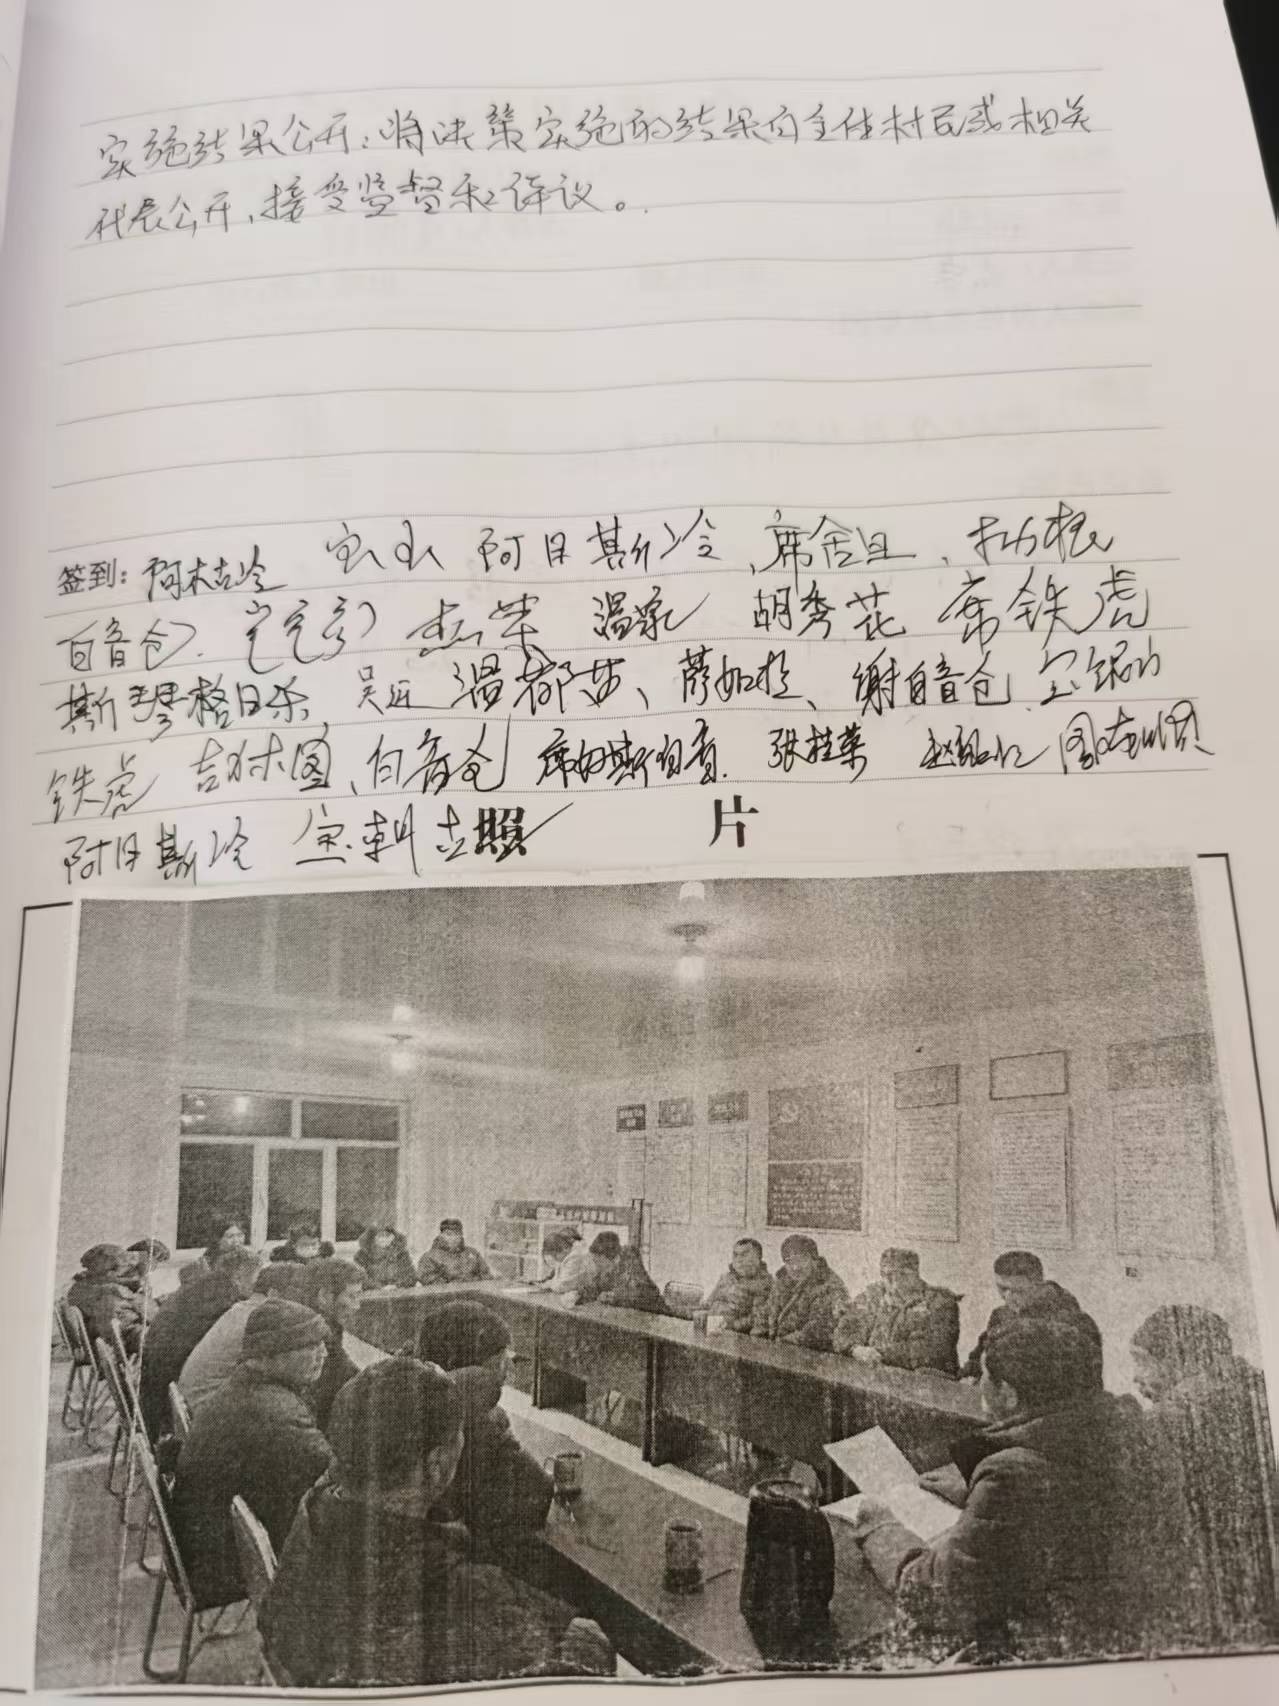 实施结果公开：将决策实施的结果向全体村民或相关
代表公开，接受监督和评议。
签到：阿木古冷 宝山 阿日斯冷、席舍旦、扎力根
白音仓 温家 胡秀花 席铁虎
斯琴格日乐 吴远 温都苏、谢白音仓 宝银山
铁虎 吉林图、白音仓 张桂荣
阿日斯冷 宝朝古 照 片